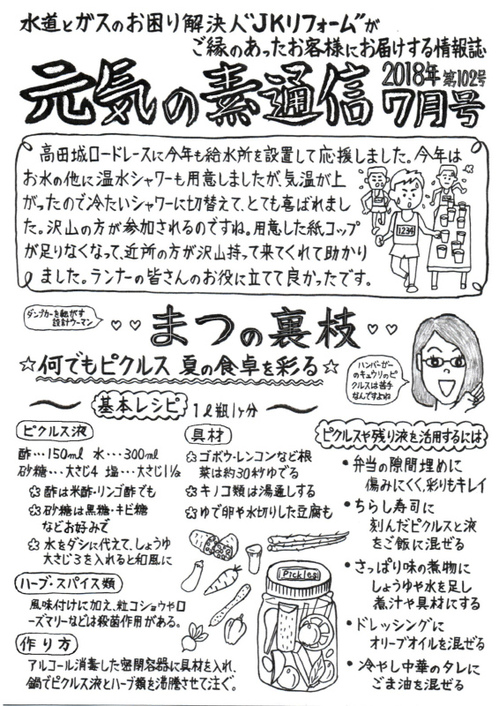 水道とガスのお困り解決人"JKリフォーム"が
ご縁のあったお客様にお届けする情報誌
元気の素通信
2018年 第102号
7月号
高田城ロードレースに今年も給水所を設置して応援しました。今年は
お水の他に温水シャワーも用意しましたが、気温が上
がったので冷たいシャワーに切替えて、とても喜ばれまし
た。沢山の方が参加されるのですね。用意した紙コップ
が足りなくなって、近所の方が沢山持って来てくれて助かり
ました。ランナーの皆さんのお役に立てて良かったです。
1234
ダンプカーを転がす
設計ウーマン
♡♡まつの裏枝♡♡
☆何でもピクルス 夏の食卓を彩る☆
ハンバーガー
のキュウリのピ
クルスは苦手
なんですよね
基本レシピ 1ℓ瓶1ヶ分
ピクルス液
酢…150ml 水…300ml
砂糖…大さじ4 塩…大さじ1½
酢は米酢・リンゴ酢でも
砂糖は黒糖・キビ糖
などお好みで
水をダシに代えて、しょうゆ
大さじ3を入れると和風に
ハーブ・スパイス類
風味付けに加え、粒コショウやロ
ーズマリーなどは殺菌作用がある。
作り方
アルコール消毒した密閉容器に具材を入れ、
鍋でピクルス液とハーブ類を沸騰させて注ぐ。
具材
ゴボウ・レンコンなど根
菜は約30秒ゆでる
キノコ類は湯通しする
ゆで卵や水切りした豆腐も
Pickles
ピクルスや残り液を活用するには
•弁当の隙間埋めに
傷みにくく、彩りもキレイ
•ちらし寿司に
刻んだピクルスと液
をご飯に混ぜる
•さっぱり味の煮物に
しょうゆや水を足し
煮汁や具材にする
•ドレッシングに
オリーブオイルを混ぜる
•冷やし中華のタレに
ごま油を混ぜる